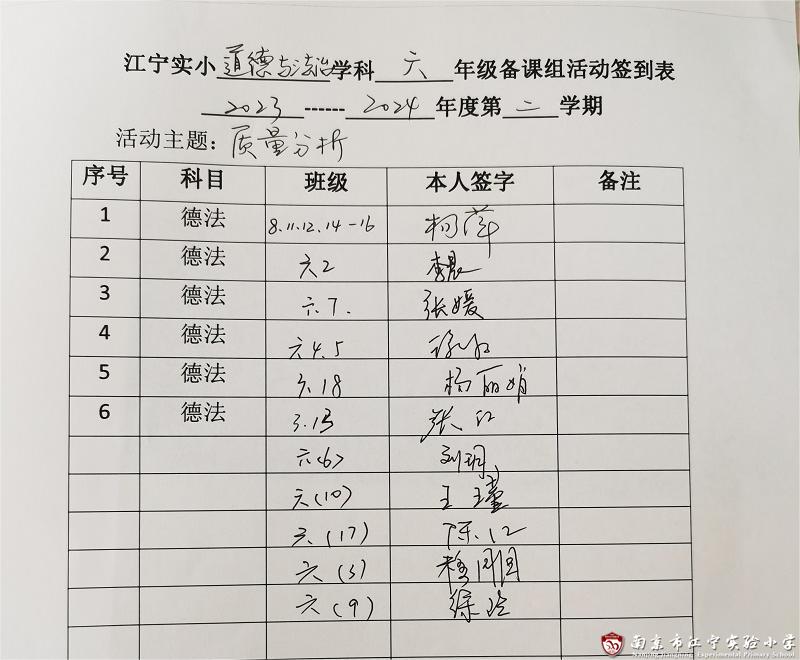 江宁实小道德与法治学科 六 年级备课组活动签到表
2023 ------ 2024 年度第 二 学期
活动主题：质量分析
序号 科目 班级 本人签字 备注
1 德法 8.11.12.14-16 杨萍
2 德法 六2 李晨
3 德法 六.7. 张媛
4 德法 六4.5
5 德法 六.18 杨丽娟
6 德法 张红
六(6) 刘玥
六(10) 王瑾
六(17) 陈
六(3)
六(9) 徐玲
南京市江宁实验小学
Nanjing Jiangning Experimental Primary School